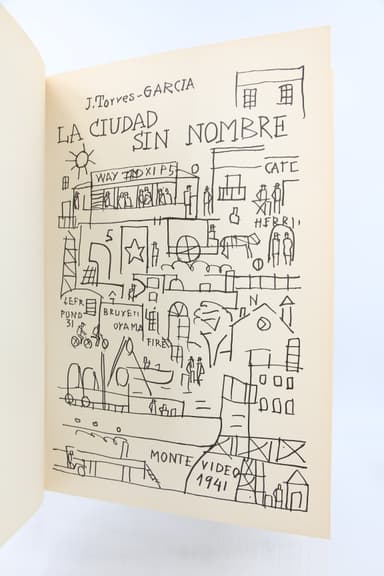 J. Torres-GARCIA
LA CIUDAD
SIN NOMBRE
CAFE
5
HERRI
N
LEFR
PUND
31
BRUYE
OYAMA
FIRE
MONTE VIDEO
1941